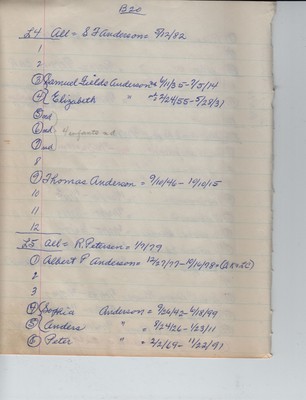 B20
L4 All = S F Anderson = 5/12/82
1
2
③ Samuel Fields Anderson = 6/11/35 - 7/5/14
④ Elizabeth " = 2/24/55 - 5/28/31
⑤ nd
⑥ nd 4 infants nd
⑦ nd
8
⑨ Thomas Anderson = 9/10/46 - 10/10/15
10
11
12
L5 All = R. Petersen = 1/7/79
① Albert P Anderson = 12/27/77 - 10/16/78
2
3
④ Sophia Anderson = 9/26/42 - 6/18/99
⑤ Anders " = 9/24/26 - 1/23/11
⑥ Peter " = 2/2/69 - 11/22/91